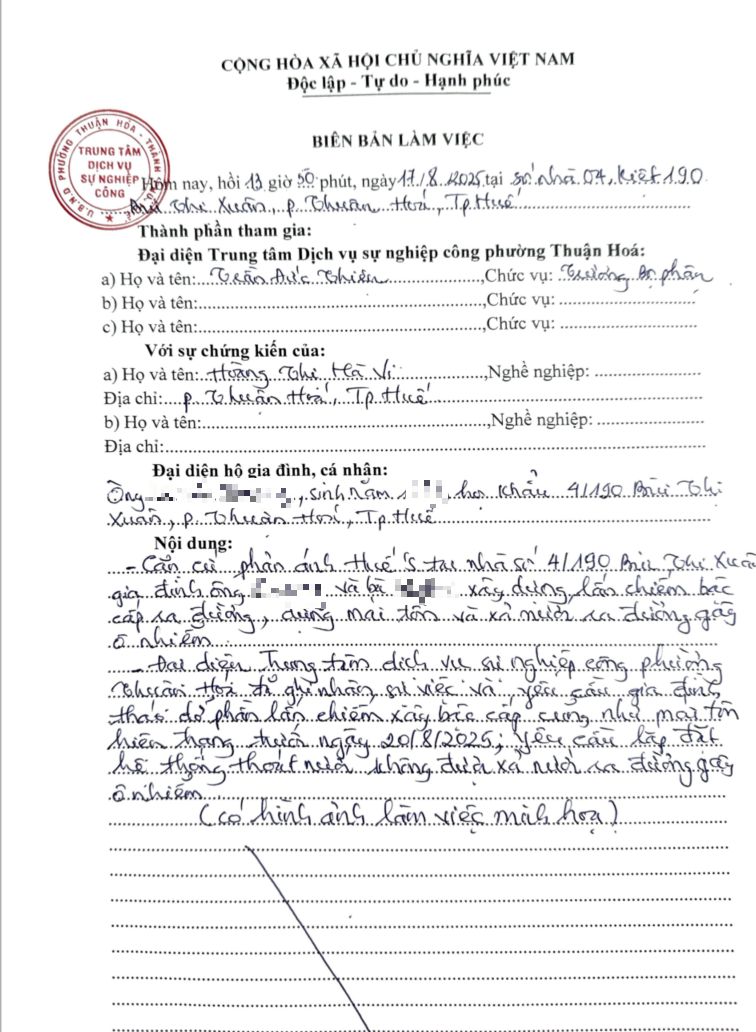 CỘNG HÒA XÃ HỘI CHỦ NGHĨA VIỆT NAM
Độc lập - Tự do - Hạnh phúc
BIÊN BẢN LÀM VIỆC
U.B.N.D PHƯỜNG THUẬN HÓA - THÀNH PHỐ HUẾ
TRUNG TÂM
DỊCH VỤ
SỰ NGHIỆP
CÔNG
Hôm nay, hồi 13 giờ 50 phút, ngày 17/8/2025 tại số nhà 04, kiệt 190
Bùi Thị Xuân, p. Thuận Hoá, Tp.Huế
Thành phần tham gia:
Đại diện Trung tâm Dịch vụ sự nghiệp công phường Thuận Hoá:
a) Họ và tên: Trần Đức Thiện, Chức vụ: Trưởng bộ phận
b) Họ và tên:, Chức vụ:
c) Họ và tên:, Chức vụ:
Với sự chứng kiến của:
a) Họ và tên: Hoàng Thị Hà Vi, Nghề nghiệp:
Địa chỉ: p. Thuận Hoá, Tp Huế
b) Họ và tên:, Nghề nghiệp:
Địa chỉ:
Đại diện hộ gia đình, cá nhân:
Ông, sinh năm 1, hộ khẩu 4/190 Bùi Thị
Xuân, p. Thuận Hoá, Tp.Huế
Nội dung:
- Căn cứ phản ánh Huế S tại nhà số 4/190 Bùi Thị Xuân
gia đình ông và bà xây dựng, lấn chiếm bậc
cấp ra đường, dựng mái tôn và xả nước ra đường gây
ô nhiễm
- Đại diện Trung tâm dịch vụ sự nghiệp công phường
Thuận Hoá đã ghi nhận sự việc và yêu cầu gia đình
tháo dỡ phần lấn chiếm xây bậc cấp cũng như mái tôn
hiện trạng trước ngày 20/8/2025; yêu cầu lắp đặt
hệ thống thoát nước không được xả nước ra đường gây
ô nhiễm
(có hình ảnh làm việc minh hoạ)